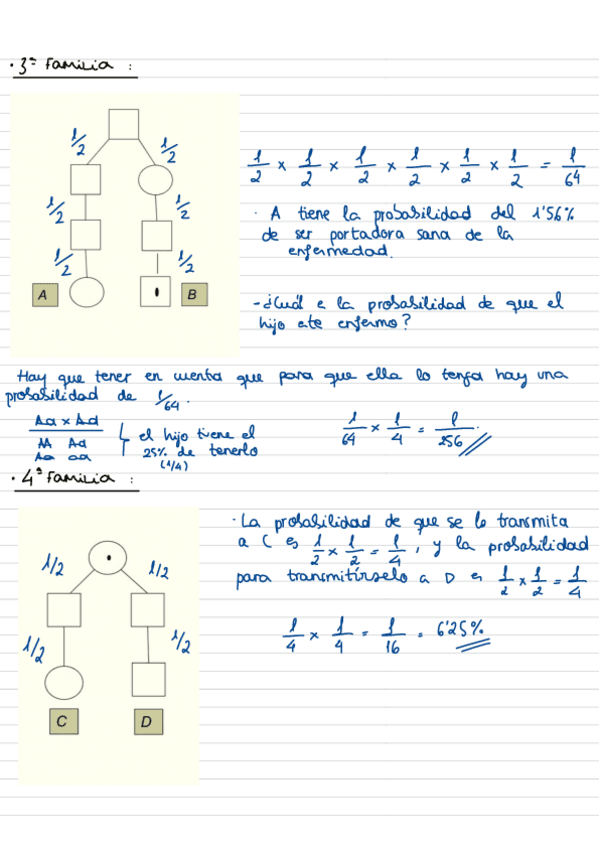 · 3ª Familia :
1/2 1/2
1/2 1/2
1/2 1/2
A B
1/2 × 1/2 × 1/2 × 1/2 × 1/2 × 1/2 = 1/64
· A tiene la probabilidad del 1'56%
de ser portadora sana de la
enfermedad.
- ¿Cuál e la probabilidad de que el
hijo este enfermo?
Hay que tener en cuenta que para que ella lo tenga hay una
probabilidad de 1/64.
Aa × Aa
AA Aa
Aa aa
el hijo tiene el
25% de tenerlo
(1/4)
1/64 × 1/4 = 1/256
· 4ª Familia :
1/2 1/2
1/2 1/2
C D
· La probabilidad de que se lo transmita
a C es 1/2 × 1/2 = 1/4, y la probabilidad
para transmitírselo a D es 1/2 × 1/2 = 1/4
1/4 × 1/4 = 1/16 = 6'25%